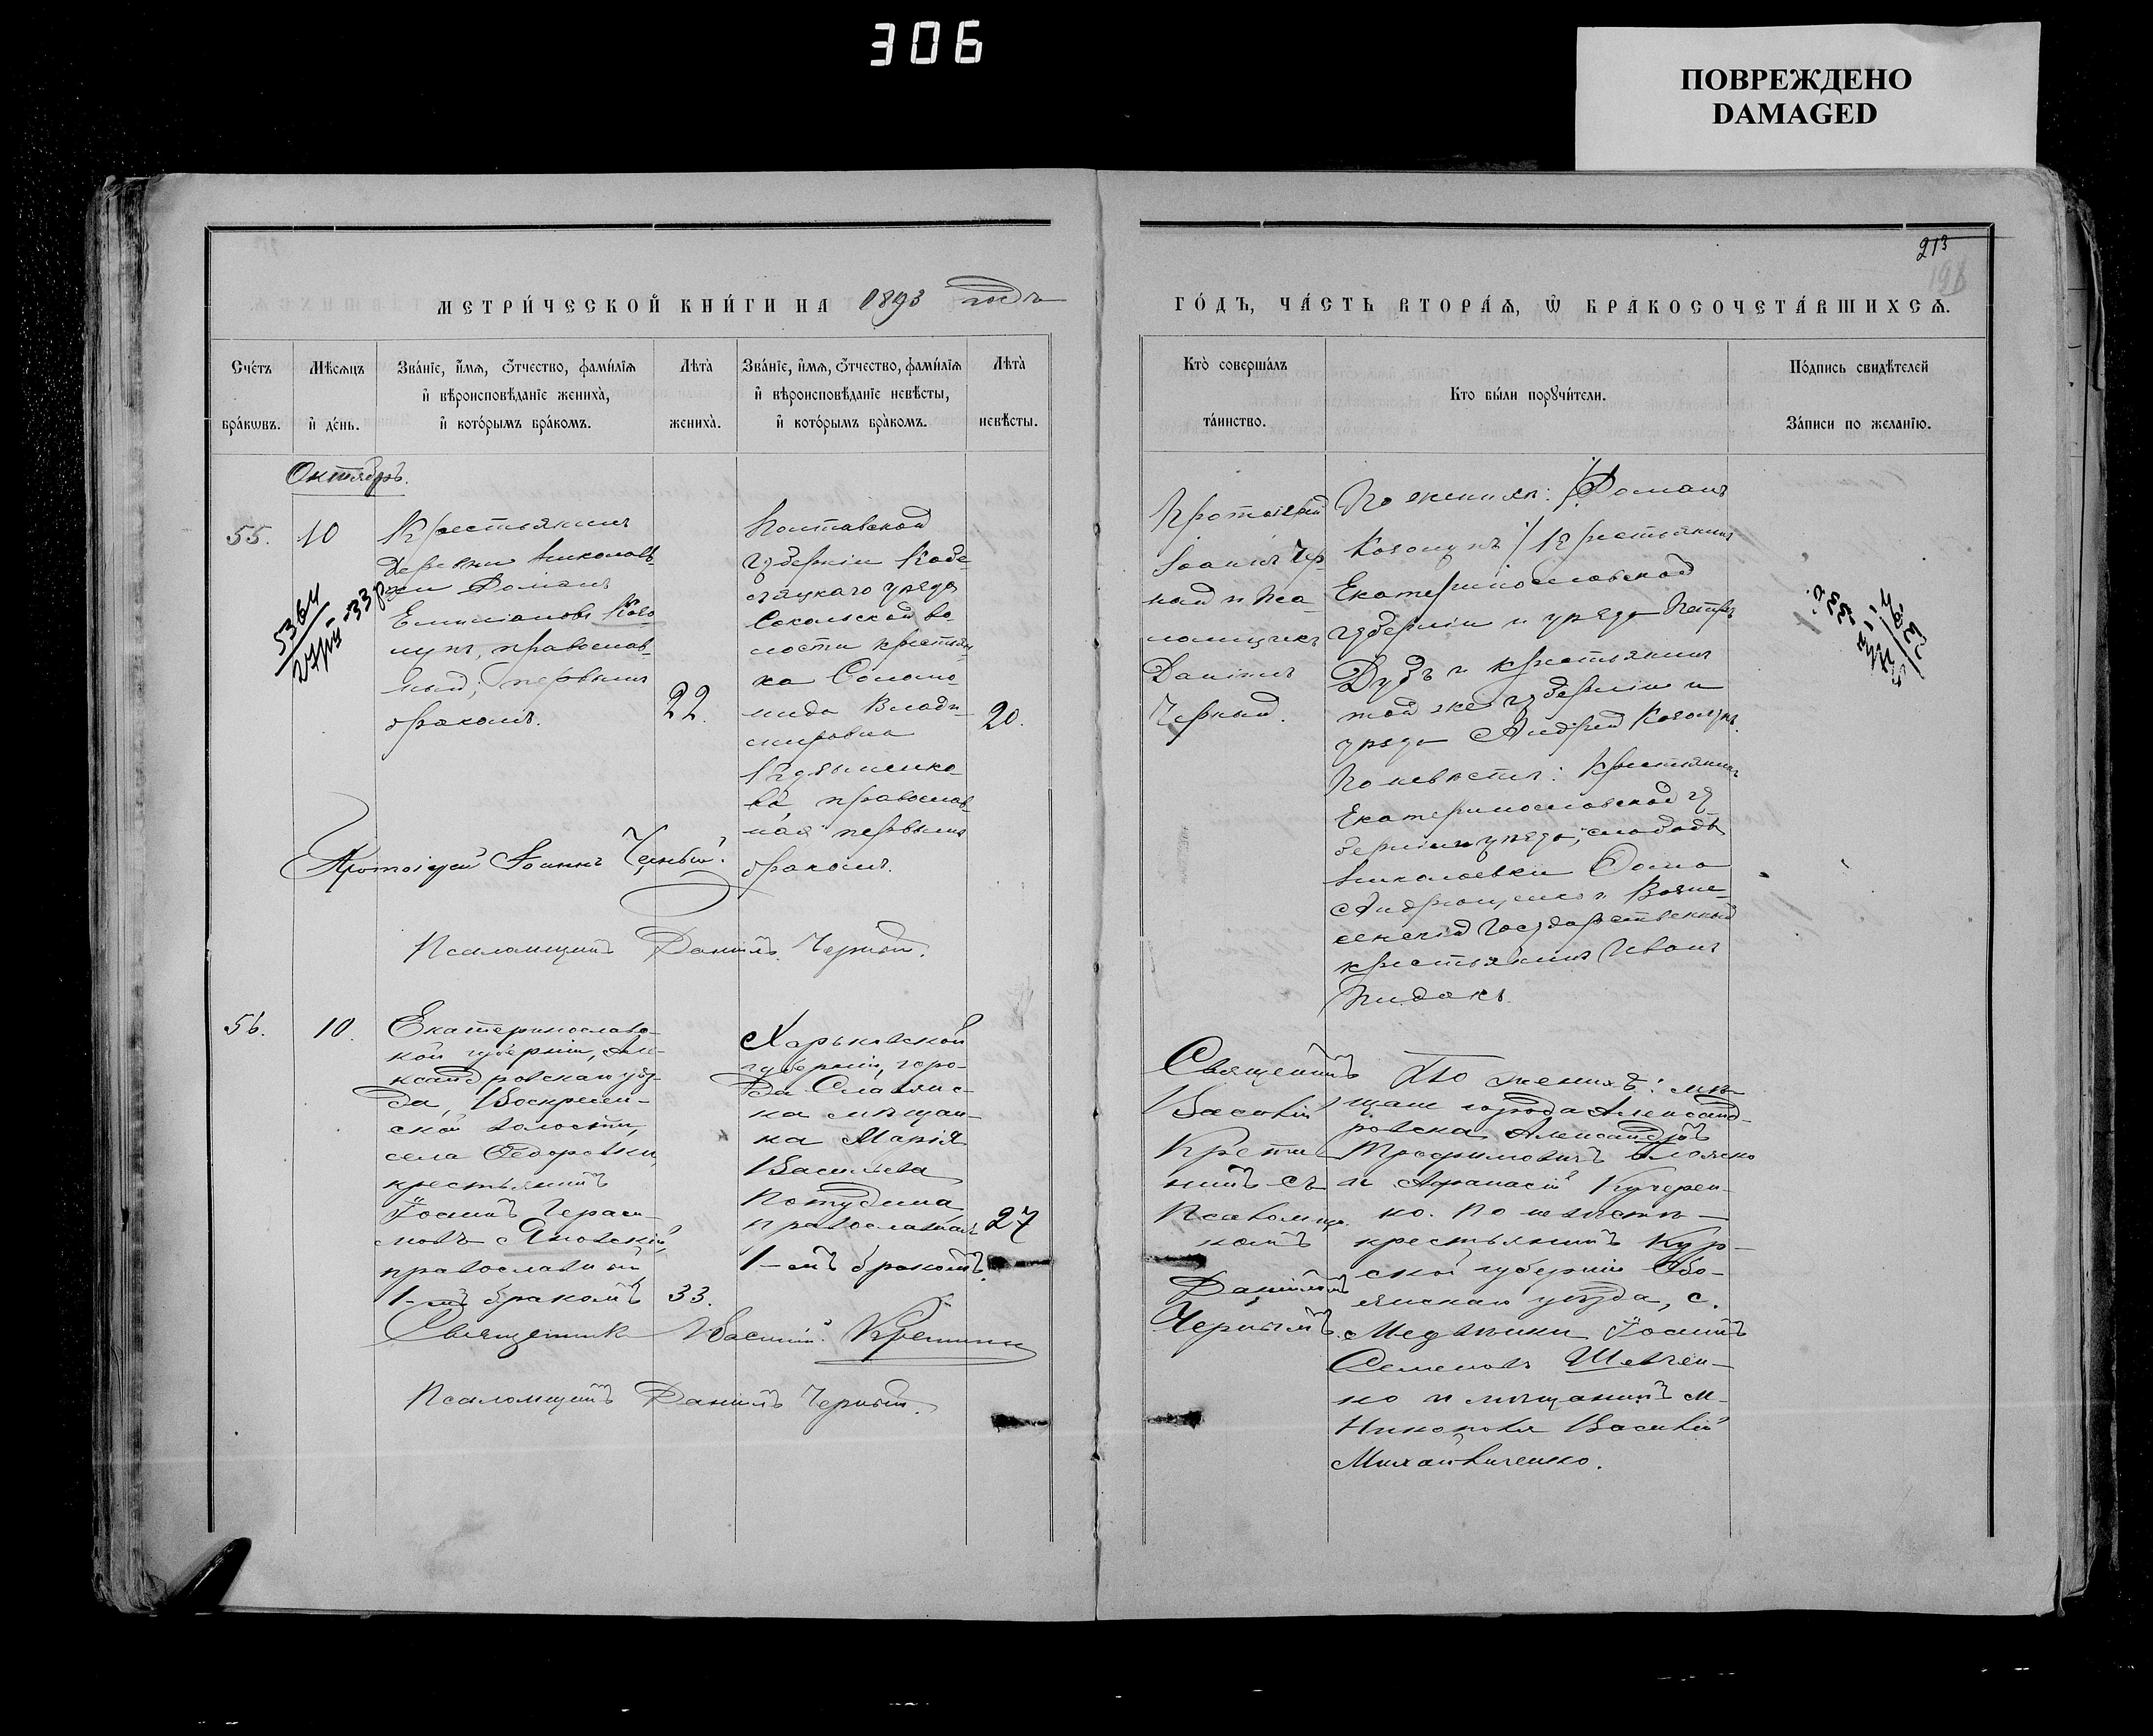 306
ПОВРЕЖДЕНО
DAMAGED
213
МЕТРИ́ЧЕСКОЙ КНИ́ГИ НА 1893 годъ
ГО́ДЪ, ЧА́СТЬ ВТОРА́Я, Ѿ БРАКОСОЧЕТА́ВШИХСЯ.
Сче́тъ
бра́кѡвъ.
Мѣ́сяцъ
и҆ де́нь.
Зва́нїе, и҆́мя, ѻ҆́тчество, фами́лїя
и҆ вѣроисповѣ́данїе жениха̀,
и҆ кото́рымъ бра́комъ.
Лѣта̀
жениха̀.
Зва́нїе, и҆́мя, ѻ҆́тчество, фами́лїя
и҆ вѣроисповѣ́данїе невѣ́сты,
и҆ кото́рымъ бра́комъ.
Лѣта̀
невѣ́сты.
Кто̀ соверша́лъ
та́инство.
Кто̀ бы́ли порꙋчи́тели.
По́дпись свидѣ́телей
За́писи по жела́нїю.
Октябрь.
55.
10
5364
Крестьянинъ
деревни Николаев-
ки Романъ
Емилiановъ Ково-
лупъ, православ-
ный; первымъ
бракомъ.
22.
Полтавской
губернiи Кобе-
ляцкаго уѣзда
Сокольской во-
лости крестьян-
ка Соломо-
нида Влади-
мировна
православ-
ная первымъ
бракомъ.
20.
Протоiерей
Iоаннъ Чер-
ный и Пса-
ломщикъ
Данiилъ
Черный.
По женихѣ: Романъ
крестьянинъ
Екатеринославской
губернiи и уѣзда Петръ
Дубъ и крестьянинъ
той же губернiи и
уѣзда Андрей
По невѣстѣ: Крестьянинъ
Екатеринославской гу-
бернiи и уѣзда, слободы
Николаевки Фома
Андрющенко и Возне-
сенскiй Государственный
крестьянинъ Иванъ
Протоiерей Iоаннъ Черный.
Псаломщикъ Данiилъ Черный.
56.
10.
Екатеринославс-
кой губернiи, Але-
ксандровскаго уѣз-
да, Воскресен-
ской волости,
села Ѳедоровки,
крестьянинъ
Iосифъ Гераси-
мовъ Яновскiй,
православный
1-мъ бракомъ
33.
Харьковской
губернiи, горо-
да Славянс-
ка мѣщан-
ка Марiя
Васильева
Потудина
православная
1-мъ бракомъ.
27
Священникъ
Василiй
Крети-
нинъ съ
Псаломщи-
комъ
Данiиломъ
Чернымъ.
По женихѣ: мѣ-
щане города Александ-
ровска Александръ
Трофимовичъ
и Афанасiй Кучерен-
ко. По невѣстѣ -
крестьянинъ Кур-
ской губернiи Обо-
янскаго уѣзда, с.
Медвѣнки Iосифъ
Семеновъ Шевчен-
ко и мѣщанинъ м.
Никополя Василiй
Михайличенко.
Священникъ Василiй Кретининъ
Псаломщикъ Данiилъ Черный.